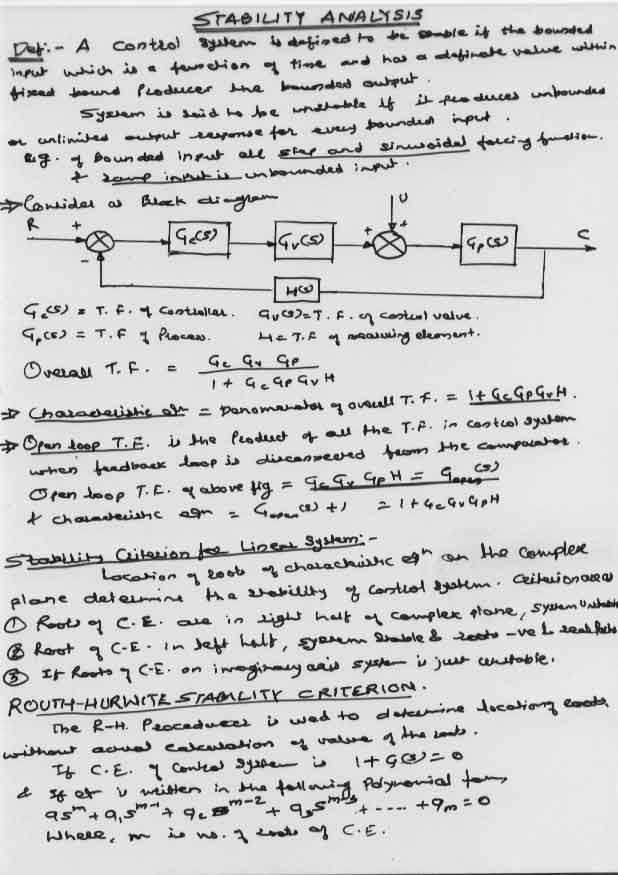 STABILITY ANALYSIS
Def:- A control system is defined to be stable if the bounded
input which is a function of time and has a definate value within
fixed bound Producer the bounded output.
System is said to be unstable if it produces unbounded
or unlimited output response for every bounded input.
E.g. of bounded input all step and sinusoidal forcing function.
& ramp input is unbounded input.
⇒ Consider a Block diagram
R + - Gc(s) Gv(s) + U + Gp(s) C
H(s)
Gc(s) = T.F. of Controller. Gv(s) = T.F. of control valve.
Gp(s) = T.F of Process. H = T.F of measuring element.
Overall T.F. = Gc Gv Gp / 1 + Gc Gp Gv H
⇒ Characteristic eqn = Denomenator of overall T.F. = 1 + Gc Gp Gv H.
⇒ Open loop T.F. is the Product of all the T.F. in control system
when feedback loop is disconnected from the comparator.
Open loop T.F. of above fig = Gc Gv Gp H = Gopen(s)
& characteristic eqn = Gopen(s) + 1 = 1 + Gc Gv Gp H
Stability Criterion for Linear System:-
Location of roots of charachristic eqn on the complex
plane determine the stability of control system. Criterion are as
① Roots of C.E. are in right half of complex plane, system Unstable
② Root of C.E. in left half, system Stable & roots -ve & real
③ If Roots of C.E. on imaginary axis system is just unstable.
ROUTH-HURWITE STABILITY CRITERION.
The R-H. Proceducer is used to determine location of roots
without actual calculation of value of the roots.
If C.E. of Control System is 1 + G(s) = 0
& If it is written in the following Polynomial form,
a s^m + a₁ s^m-1 + a₂ s^m-2 + a₃ s^m-3 + ..... + a_m = 0
Where, m is no. of roots of C.E.